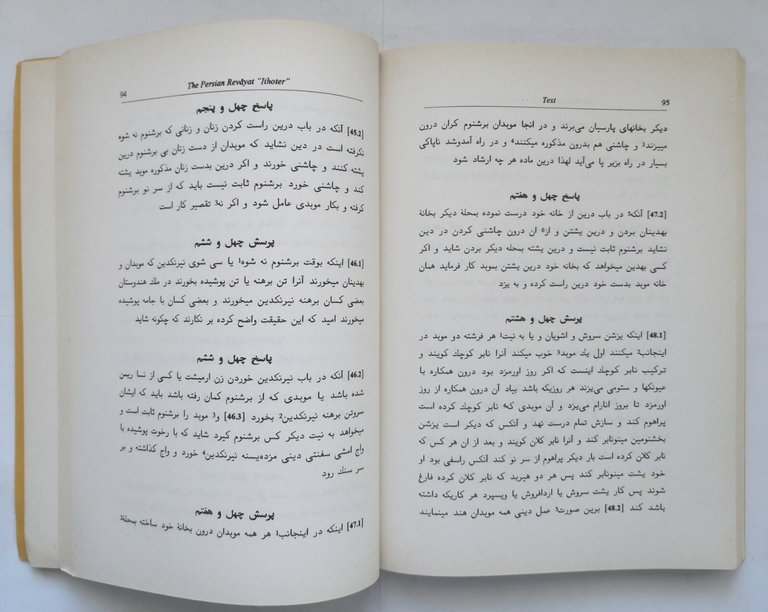 94
The Persian Revāyat "Ithoter"
پاسخ چهل و پنجم
[45.2] آنکه در باب درین راست کردن زنان و زنانی که برشنوم نه شوه
نکرفته است در دین نشاید که موبدان از دست زنان بی برشنوم درین
یشته کنند و چاشنی خورند و اکر درین بدست زنان مذکوره موبد یشته
کند و چاشنی خورد برشنوم ثابت نیست باید که از سر نو برشنوم
کرفته و بکار موبدی عامل شود و اکر نه³ تقصیر کار است
پرسش چهل و ششم
[46.1] اینکه بوقت برشنوم نه شوه¹ یا سی شوی نیرنکدین که موبدان و
بهدینان میخورند آنرا تن برهنه یا تن پوشیده بخورند در ملك هندوستان
بعضی کسان برهنه نیرنکدین میخورند و بعضی کسان با جامه پوشیده
میخورند امید که این حقیقت واضح کرده بر نکارند که چکونه شاید
پاسخ چهل و ششم
[46.2] آنکه در باب نیرنکدین خوردن زن ارمیشت یا کسی از نسا ریمن
شده باشد یا موبدی که از برشنوم کسان رفته باشد باید که ایشان
سروتن برهنه نیرنکدین² بخورد [46.3] و³ موبد را برشنوم ثابت است و
میخواهد به نیت دیکر کس برشنوم کیرد شاید که با رخوت پوشیده با
واج امشی سفنتی دینی مزدهیسنه نیرنکدین⁴ خورد و واج کذاشته و بر
سر سنك رود
پرسش چهل و هفتم
[47.1] اینکه در اینجانب¹ هر همه موبدان درون بخانهٔ خود ساخته بمحلهٔ
Text
95
دیکر بخانهای پارسیان می‌برند و در انجا موبدان برشنوم کران درون
میبزند³ و چاشنی هم بدرون مذکوره میکنند⁴ و در راه آمدوشد ناپاکی
بسیار در راه بزیر پا می‌آید لهذا درین ماده هر چه ارشاد شود
پاسخ چهل و هفتم
[47.2] آنکه⁵ در باب درین از خانه خود درست نموده بمحلهٔ دیکر بخانهٔ
بهدینان بردن و درین یشتن و از⁶ ان درون چاشنی کردن در دین
نشاید برشنوم ثابت نیست و درین یشته بمحله دیکر بردن شاید و اکر
کسی بهدین میخواهد که بخانه خود درین یشتن بموبد کار فرماید همان
خانه موبد بدست خود درین راست کرده و به یزد
پرسش چهل و هشتم
[48.1] اینکه یزشن سروش و اشویان و یا به نیت¹ هر فرشته دو موبد در
اینجانب² میکنند اول یك موبد³ خوب میکند آنرا نابر کوچك کویند و
ترکیب نابر کوچك اینست که اکر روز اورمزد بود درون همکاره با
میونکها و ستومی می‌یزند هر روزیکه باشد بیاد آن درون همکاره از روز
اورمزد تا بروز انارام می‌یزد و آن موبدی که⁴ نابر کوچك کرده است
پراهوم کند و سازش تمام درست نهد و آنکس که دیکر است یزشن
بخشنومین مینونابر کند و آنرا نابر کلان کویند و بعد از ان هر کس که
نابر کلان کرده است بار دیکر پراهوم از سر نو کند آنکس راسفی بود او
خود یشت مینونابر کند پس هر دو هیربد که نابر کلان کرده فارغ
شوند پس کار یشت سروش یا اردافروش یا ویسپرد هر کاریکه داشته
باشد کند [48.2] برین صورت⁵ عمل دینی همه موبدان هند مینمایند